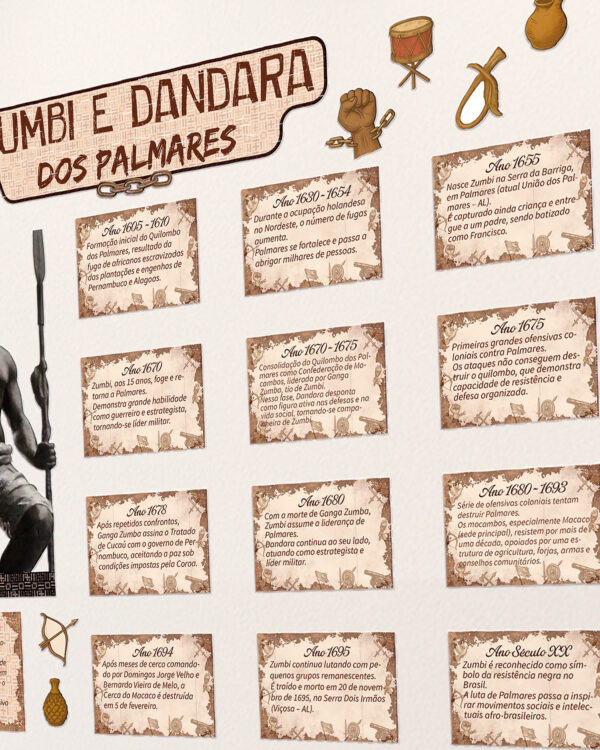 UMBI E DANDARA
DOS PALMARES
Ano 1605 - 1610
Formação inicial do Quilombo
dos Palmares, resultado da
fuga de africanos escravizados
das plantações e engenhos de
Pernambuco e Alagoas.
Ano 1630 - 1654
Durante a ocupação holandesa
no Nordeste, o número de fugas
aumenta.
Palmares se fortalece e passa a
abrigar milhares de pessoas.
Ano 1655
Nasce Zumbi na Serra da Barriga,
em Palmares (atual União dos Pal-
mares – AL).
É capturado ainda criança e entre-
gue a um padre, sendo batizado
como Francisco.
Ano 1670
Zumbi, aos 15 anos, foge e re-
torna a Palmares.
Demonstra grande habilidade
como guerreiro e estrategista,
tornando-se líder militar.
Ano 1670 - 1675
Consolidação do Quilombo dos Pal-
mares como Confederação de Mo-
cambos, liderada por Ganga
Zumba, tio de Zumbi.
Nessa fase, Dandara desponta
como figura ativa nas defesas e na
vida social, tornando-se compa-
nheira de Zumbi.
Ano 1675
Primeiras grandes ofensivas co-
loniais contra Palmares.
Os ataques não conseguem des-
truir o quilombo, que demonstra
capacidade de resistência e
defesa organizada.
Ano 1678
Após repetidos confrontos,
Ganga Zumba assina o Tratado
de Cucaú com o governo de Per-
nambuco, aceitando a paz sob
condições impostas pela Coroa.
Ano 1680
Com a morte de Ganga Zumba,
Zumbi assume a liderança de
Palmares.
Dandara continua ao seu lado,
atuando como estrategista e
líder militar.
Ano 1680 - 1693
Série de ofensivas coloniais tentam
destruir Palmares.
Os mocambos, especialmente Macaco
(sede principal), resistem por mais de
uma década, apoiados por uma es-
trutura de agricultura, forjas, armas e
conselhos comunitários.
Ano 1694
Após meses de cerco comanda-
do por Domingos Jorge Velho e
Bernardo Vieira de Melo, a
Cerca do Macaco é destruída
em 5 de fevereiro.
Ano 1695
Zumbi continua lutando com pe-
quenos grupos remanescentes.
É traído e morto em 20 de novem-
bro de 1695, na Serra Dois Irmãos
(Viçosa – AL).
Ano Século XX
Zumbi é reconhecido como sím-
bolo da resistência negra no
Brasil.
A luta de Palmares passa a inspi-
rar movimentos sociais e intelec-
tuais afro-brasileiros.